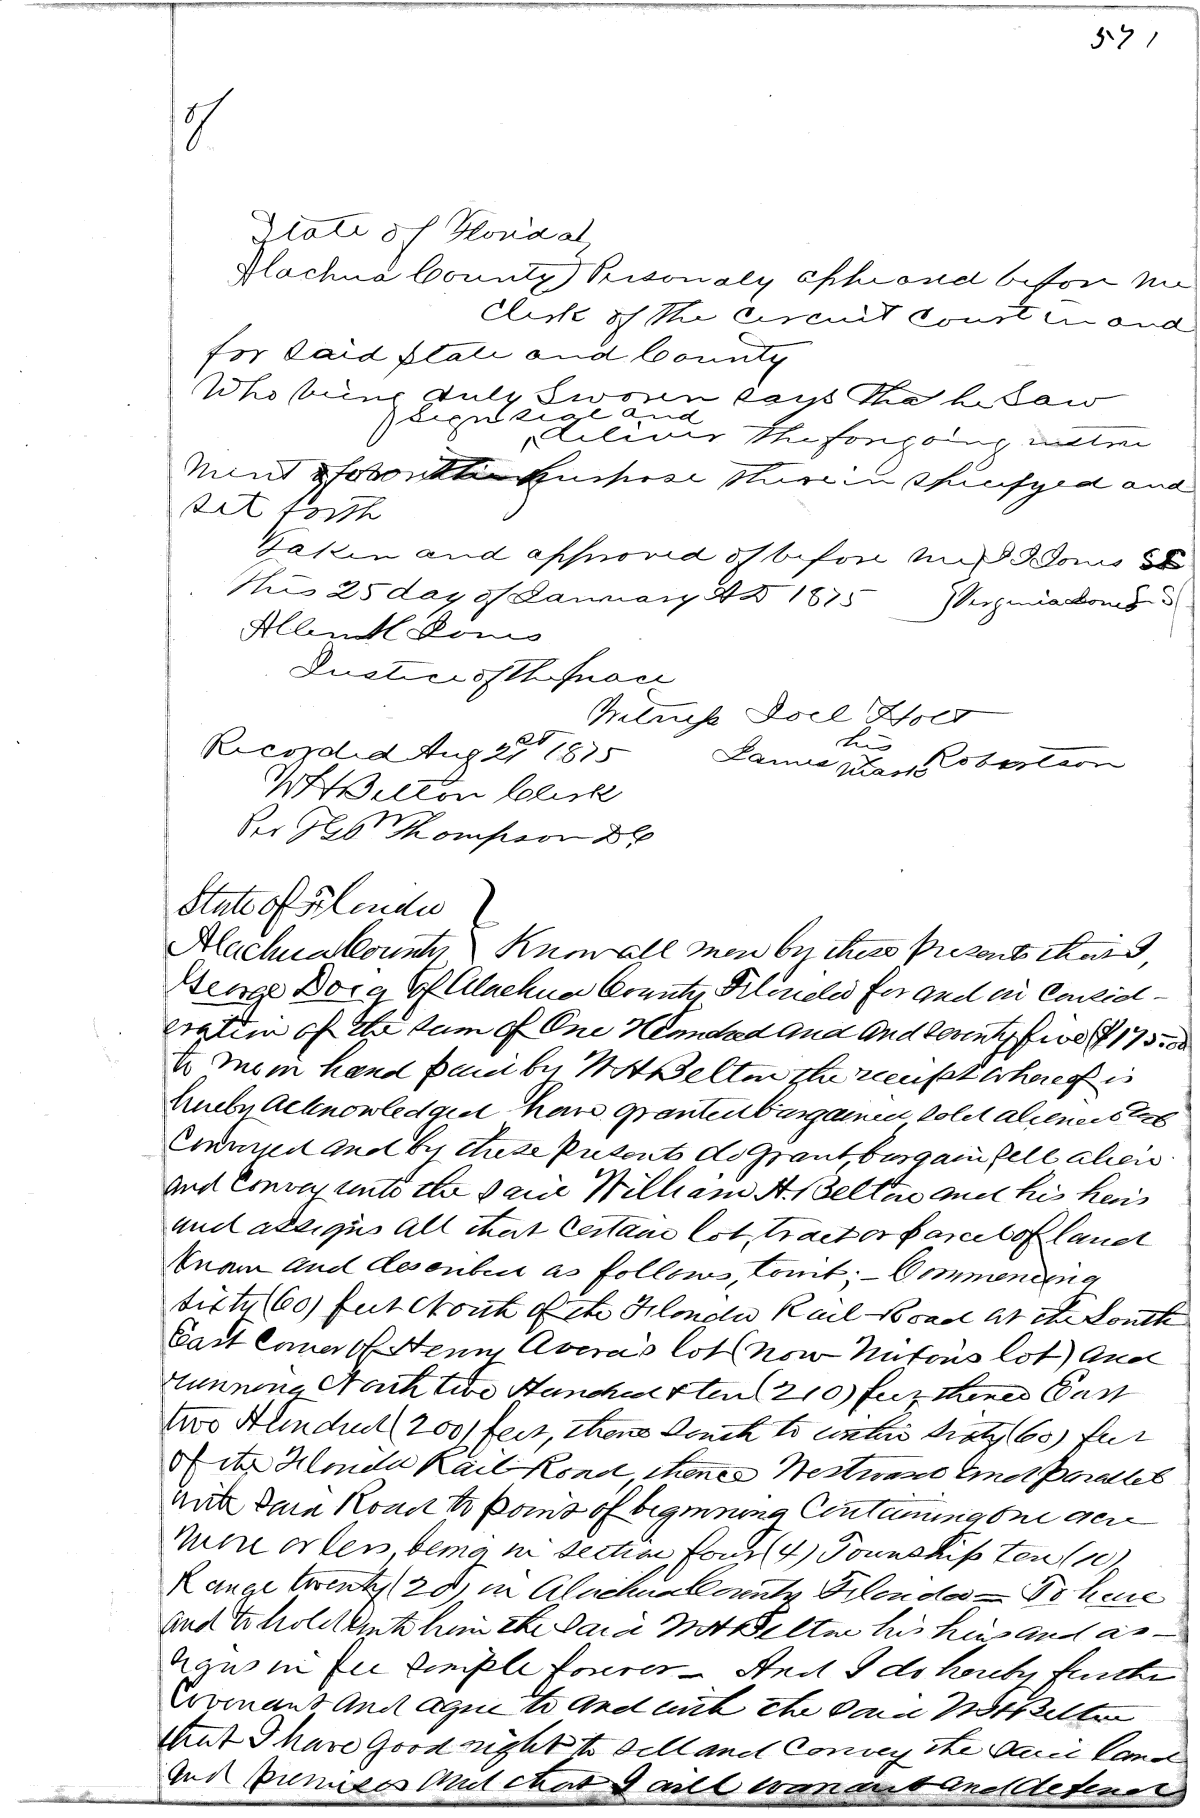 571
of
State of Florida
Alachua County) Personaly apheared before me
Clerk of the Circuit Court in and
for said state and County
Who being duly Sworen says that he Saw
sign seal and
deliver the forgoing instru
ment for the purpose therein specifyed and
set forth
Taken and approved of before me J J Jones SS
this 25 day of January AD 1875 Virginia Jones S S
Allen H Jones
Justice of the peace
Witness Joel Holt
his
Recorded Aug 21st 1875 James Robertson
mark
W H Belton Clerk
Per Thompson D C
State of Florida
Alachua County Know all men by these presents that I,
George Doig of Alachua County Florida for and in Consid-
eration of the sum of One Hundred and and seventy five ($175.00
to me in hand paid by W H Belton the receipt whereof is
hereby acknowledged have granted bargained, sold aliened and
Conveyed and by these presents do grant, bargain sell alien
and Convey unto the said William H. Belton and his heirs
and assigns all that certain lot, tract or parcel of land
known and described as follows, towit; - Commencing
sixty (60) feet North of the Florida Rail-Road at the South
East Corner of Henry Avera's lot (now Nixon's lot) and
running North two Hundred & ten (210) feet, thence East
two Hundred (200) feet, thence South to within sixty (60) feet
of the Florida Rail-Road, thence Westward and parallel
with said Road to point of beginning Containing one acre
more or less, being in section four (4) Township ten (10)
Range twenty (20) in Alachua County Florida = To have
and to hold unto him the said W H Belton his heirs and as-
signs in fee simple forever - And I do hereby further
Covenant and agree to and with the said W H Belton
that I have good right to sell and Convey the said land
and premises and that I will warrant and defend